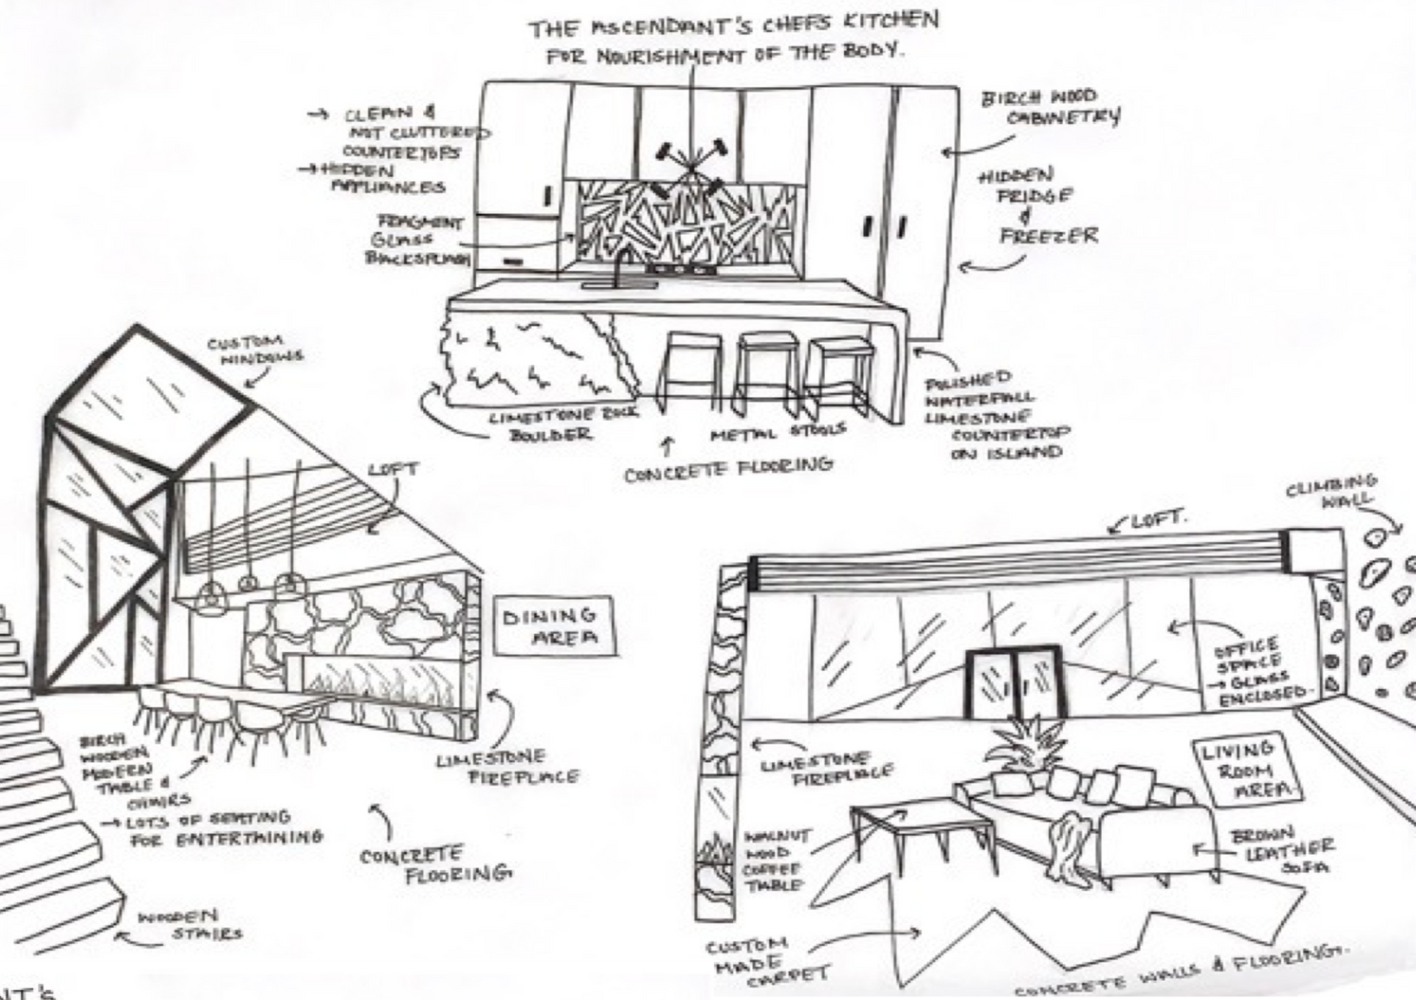 THE ASCENDANT'S CHEFS KITCHEN
FOR NOURISHMENT OF THE BODY.
→ CLEAN &
NOT CLUTTERED
COUNTERTOPS
→ HIDDEN
APPLIANCES
FRAGMENT
GLASS
BACKSPLASH
BIRCH WOOD
CABINETRY
HIDDEN
FRIDGE
&
FREEZER
LIMESTONE ROCK
BOULDER
METAL STOOLS
CONCRETE FLOORING
POLISHED
WATERFALL
LIMESTONE
COUNTERTOP
ON ISLAND
CUSTOM
WINDOWS
LOFT
DINING
AREA
LIMESTONE
FIREPLACE
BIRCH
WOODEN
MODERN
TABLE &
CHAIRS
→ LOTS OF SEATING
FOR ENTERTAINING
CONCRETE
FLOORING
WOODEN
STAIRS
CLIMBING
WALL
LOFT.
OFFICE
SPACE
→ GLASS
ENCLOSED.
LIMESTONE
FIREPLACE
LIVING
ROOM
AREA.
WALNUT
WOOD
COFFEE
TABLE
BROWN
LEATHER
SOFA
CUSTOM
MADE
CARPET
CONCRETE WALLS & FLOORING.